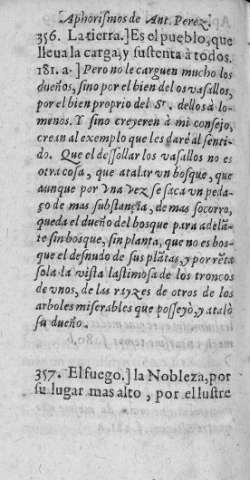 Aphorismos de Ant. Perez.
356. La tierra.] Es el pueblo, que
lleua la carga, y sustenta à todos.
181. a.] Pero no le carguen mucho los
dueños, sino por el bien de los vasallos,
por el bien proprio del Sr. dellos à lo
menos. Y sino creyeren à mi consejo,
crean al exemplo que les daré al senti-
do. Que el dessollar los vasallos no es
otra cosa, que atalar vn bosque, que
aunque por vna vez se saca vn peda-
ço de mas substançia, de mas socorro,
queda el dueño del bosque para adelã-
te sin bosque, sin planta, que no es bos-
que el desnudo de sus plãtas, y por rẽta
sola la vista lastimosa de los troncos
de vnos, de las rayzes de otros de los
arboles miserables que posseyò, y atalò
su dueño.
357. El fuego.] la Nobleza, por
su lugar mas alto, por el lustre